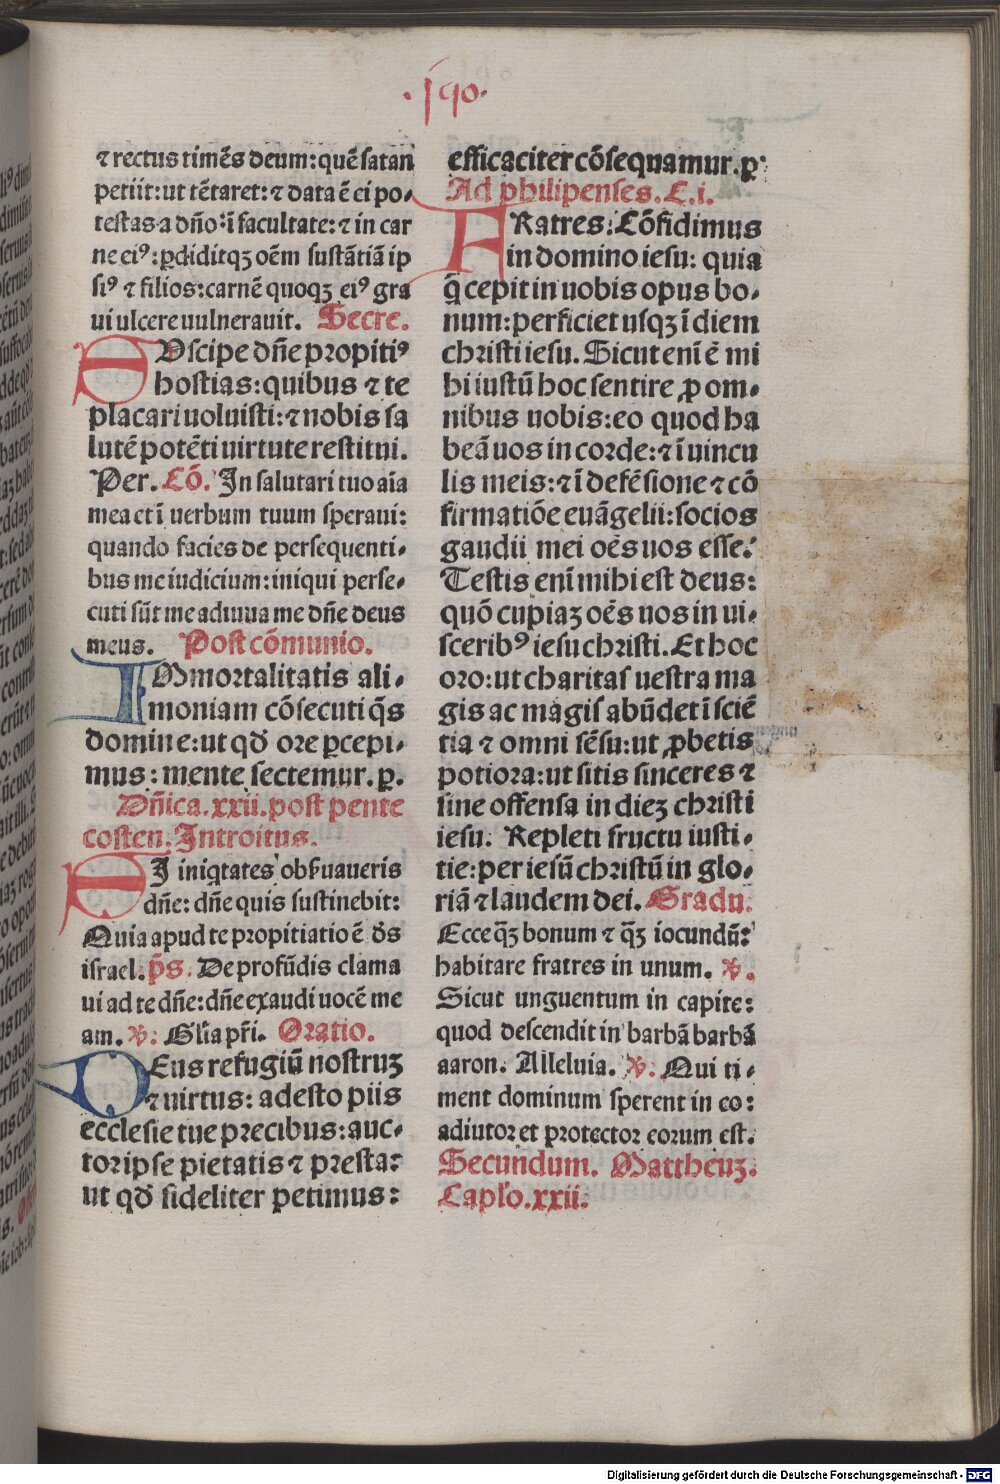 ·190·
⁊ rectus timēs deum: quē satan
petiit: ut tētaret: ⁊ data ē ei po-
testas a dño ī facultate: ⁊ in car
ne eiꝰ: ꝑdiditqꝫ oēm sustātiā ip
siꝰ ⁊ filios: carnē quoqꝫ eiꝰ gra
ui ulcere uulnerauit. Secre.
SVscipe dñe propitiꝰ
hostias: quibus ⁊ te
placari uoluisti: ⁊ nobis sa
lutē potēti uirtute restitui.
Per. Cō. In salutari tuo aīa
mea et ī uerbum tuum speraui:
quando facies de persequenti-
bus me iudicium: iniqui perse-
cuti sūt me adiuua me dñe deus
meus. Post cōmunio.
IMmortalitatis ali-
moniam cōsecuti q̄s
domine: ut qđ ore ꝑcepi-
mus: mente sectemur. ꝑ.
Dñica. xxii. post pente
costen. Introitus.
SI iniqtates obß̄uaueris
dñe: dñe quis sustinebit:
Quia apud te propitiatio ē ds̄
israel. ps̄. De profūdis clama
ui ad te dñe: dñe exaudi uocē me
am. ℣: Glīa pr̄i. Oratio.
DEus refugiū nostruꝫ
⁊ uirtus: adesto piis
ecclesie tue precibus: auc-
tor ipse pietatis ⁊ presta:
ut qđ fideliter petimus:
efficaciter cōsequamur. ꝑ:
Ad philipenses. C. i.
FRatres: Cōfidimus
in domino iesu: quia
q̄ cepit in uobis opus bo-
num: perficiet usqꝫ ī diem
christi iesu. Sicut enī ē mi
hi iustū hoc sentire ꝓ om-
nibus uobis: eo quod ha
beā uos in corde: ⁊ ī uincu
lis meis: ⁊ ī defēsione ⁊ cō
firmatiōe euāgelii: socios
gaudii mei oēs uos esse.
Testis enī mihi est deus:
quō cupiaꝫ oēs uos in ui-
sceribꝰ iesu christi. Et hoc
oro: ut charitas uestra ma
gis ac magis abūdet ī sciē
tia ⁊ omni sēsu: ut ꝓbetis
potiora: ut sitis sinceres ⁊
sine offensa in dieꝫ christi
iesu. Repleti fructu iusti-
tie: per iesū christū in glo-
riā ⁊ laudem dei. Gradu.
Ecce q̄ꝫ bonum ⁊ q̄ꝫ iocundū:
habitare fratres in unum. ℣.
Sicut unguentum in capite:
quod descendit in barbā barbā
aaron. Alleluia. ℣. Qui ti-
ment dominum sperent in eo:
adiutor et protector eorum est.
Secundum. Mattheuꝫ.
Caplo. xxii.
Digitalisierung gefördert durch die Deutsche Forschungsgemeinschaft - DFG